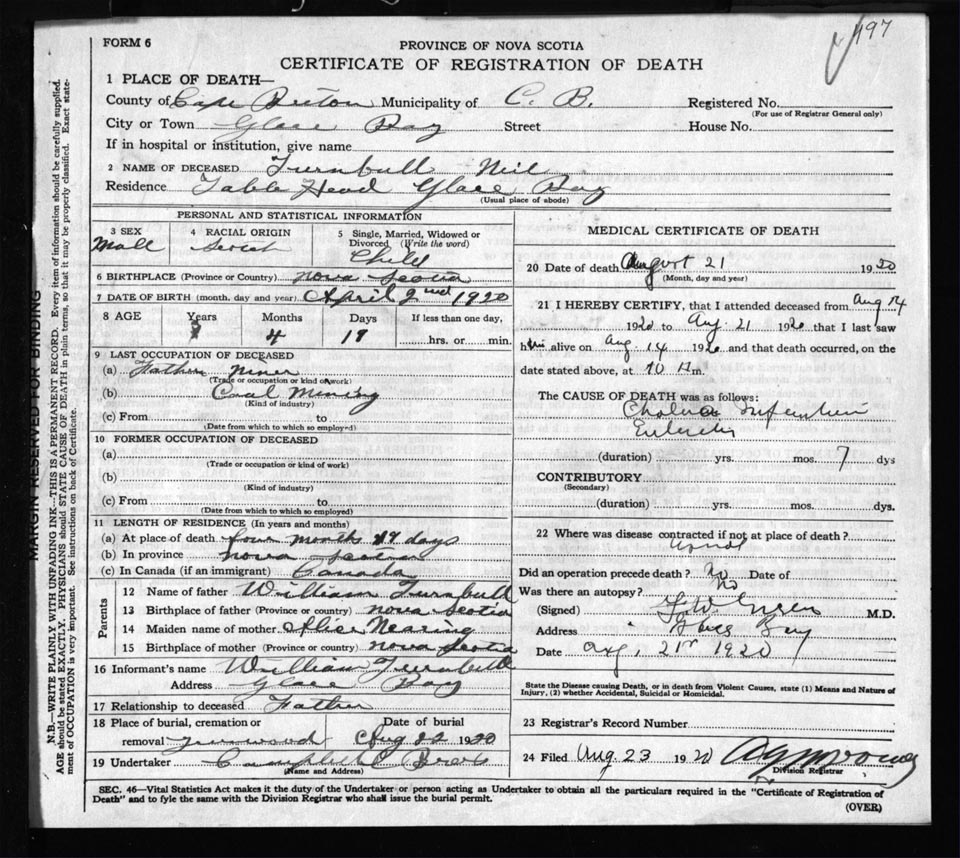 197
FORM 6
PROVINCE OF NOVA SCOTIA
CERTIFICATE OF REGISTRATION OF DEATH
1 PLACE OF DEATH—
County of Cape Breton Municipality of C. B. Registered No.
(For use of Registrar General only)
City or Town Glace Bay Street House No.
If in hospital or institution, give name
2 NAME OF DECEASED Turnbull Neil
Residence Table Head Glace Bay
(Usual place of abode)
PERSONAL AND STATISTICAL INFORMATION
3 SEX 4 RACIAL ORIGIN 5 Single, Married, Widowed or
Divorced (Write the word)
Male Scotch Child
6 BIRTHPLACE (Province or Country) Nova Scotia
7 DATE OF BIRTH (month, day and year) April 2nd 1920
8 AGE Years Months Days If less than one day,
4 19 hrs. or min.
9 LAST OCCUPATION OF DECEASED
(a) Father Miner
(Trade or occupation or kind of work)
(b) Coal Mining
(Kind of industry)
(c) From to
(Date from which to which so employed)
10 FORMER OCCUPATION OF DECEASED
(a)
(Trade or occupation or kind of work)
(b)
(Kind of industry)
(c) From to
(Date from which to which so employed)
11 LENGTH OF RESIDENCE (In years and months)
(a) At place of death four months 19 days
(b) In province Nova Scotia
(c) In Canada (if an immigrant) Canada
Parents
12 Name of father William Turnbull
13 Birthplace of father (Province or country) Nova Scotia
14 Maiden name of mother Alice Nearing
15 Birthplace of mother (Province or country) Nova Scotia
16 Informant's name William Turnbull
Address Glace Bay
17 Relationship to deceased Father
18 Place of burial, cremation or Date of burial
removal Greenwood Aug 22 1920
19 Undertaker Campbell Bros
(Name and Address)
MEDICAL CERTIFICATE OF DEATH
20 Date of death August 21 1920
(Month, day and year)
21 I HEREBY CERTIFY, that I attended deceased from Aug 14
1920 to Aug. 21 1920 that I last saw
him alive on Aug. 14 1920 and that death occurred, on the
date stated above, at 10 A m.
The CAUSE OF DEATH was as follows:
Cholera Infantum
(duration) yrs. mos. 7 dys
CONTRIBUTORY
(Secondary)
(duration) yrs. mos. dys.
22 Where was disease contracted if not at place of death?
Did an operation precede death? No Date of
Was there an autopsy? No
(Signed) M.D.
Address Glace Bay
Date Aug. 21st 1920
State the Disease causing Death, or in death from Violent Causes, state (1) Means and Nature of
Injury, (2) whether Accidental, Suicidal or Homicidal.
23 Registrar's Record Number
24 Filed Aug. 23 1920
Division Registrar
SEC. 46—Vital Statistics Act makes it the duty of the Undertaker or person acting as Undertaker to obtain all the particulars required in the "Certificate of Registration of
Death" and to fyle the same with the Division Registrar who shall issue the burial permit.
(OVER)
MARGIN RESERVED FOR BINDING
N.B.—WRITE PLAINLY WITH UNFADING INK—THIS IS A PERMANENT RECORD. Every item of information should be carefully supplied.
AGE should be stated EXACTLY. PHYSICIANS should STATE CAUSE OF DEATH in plain terms, so that it may be properly classified. Exact state-
ment of OCCUPATION is very important. See instructions on back of Certificate.